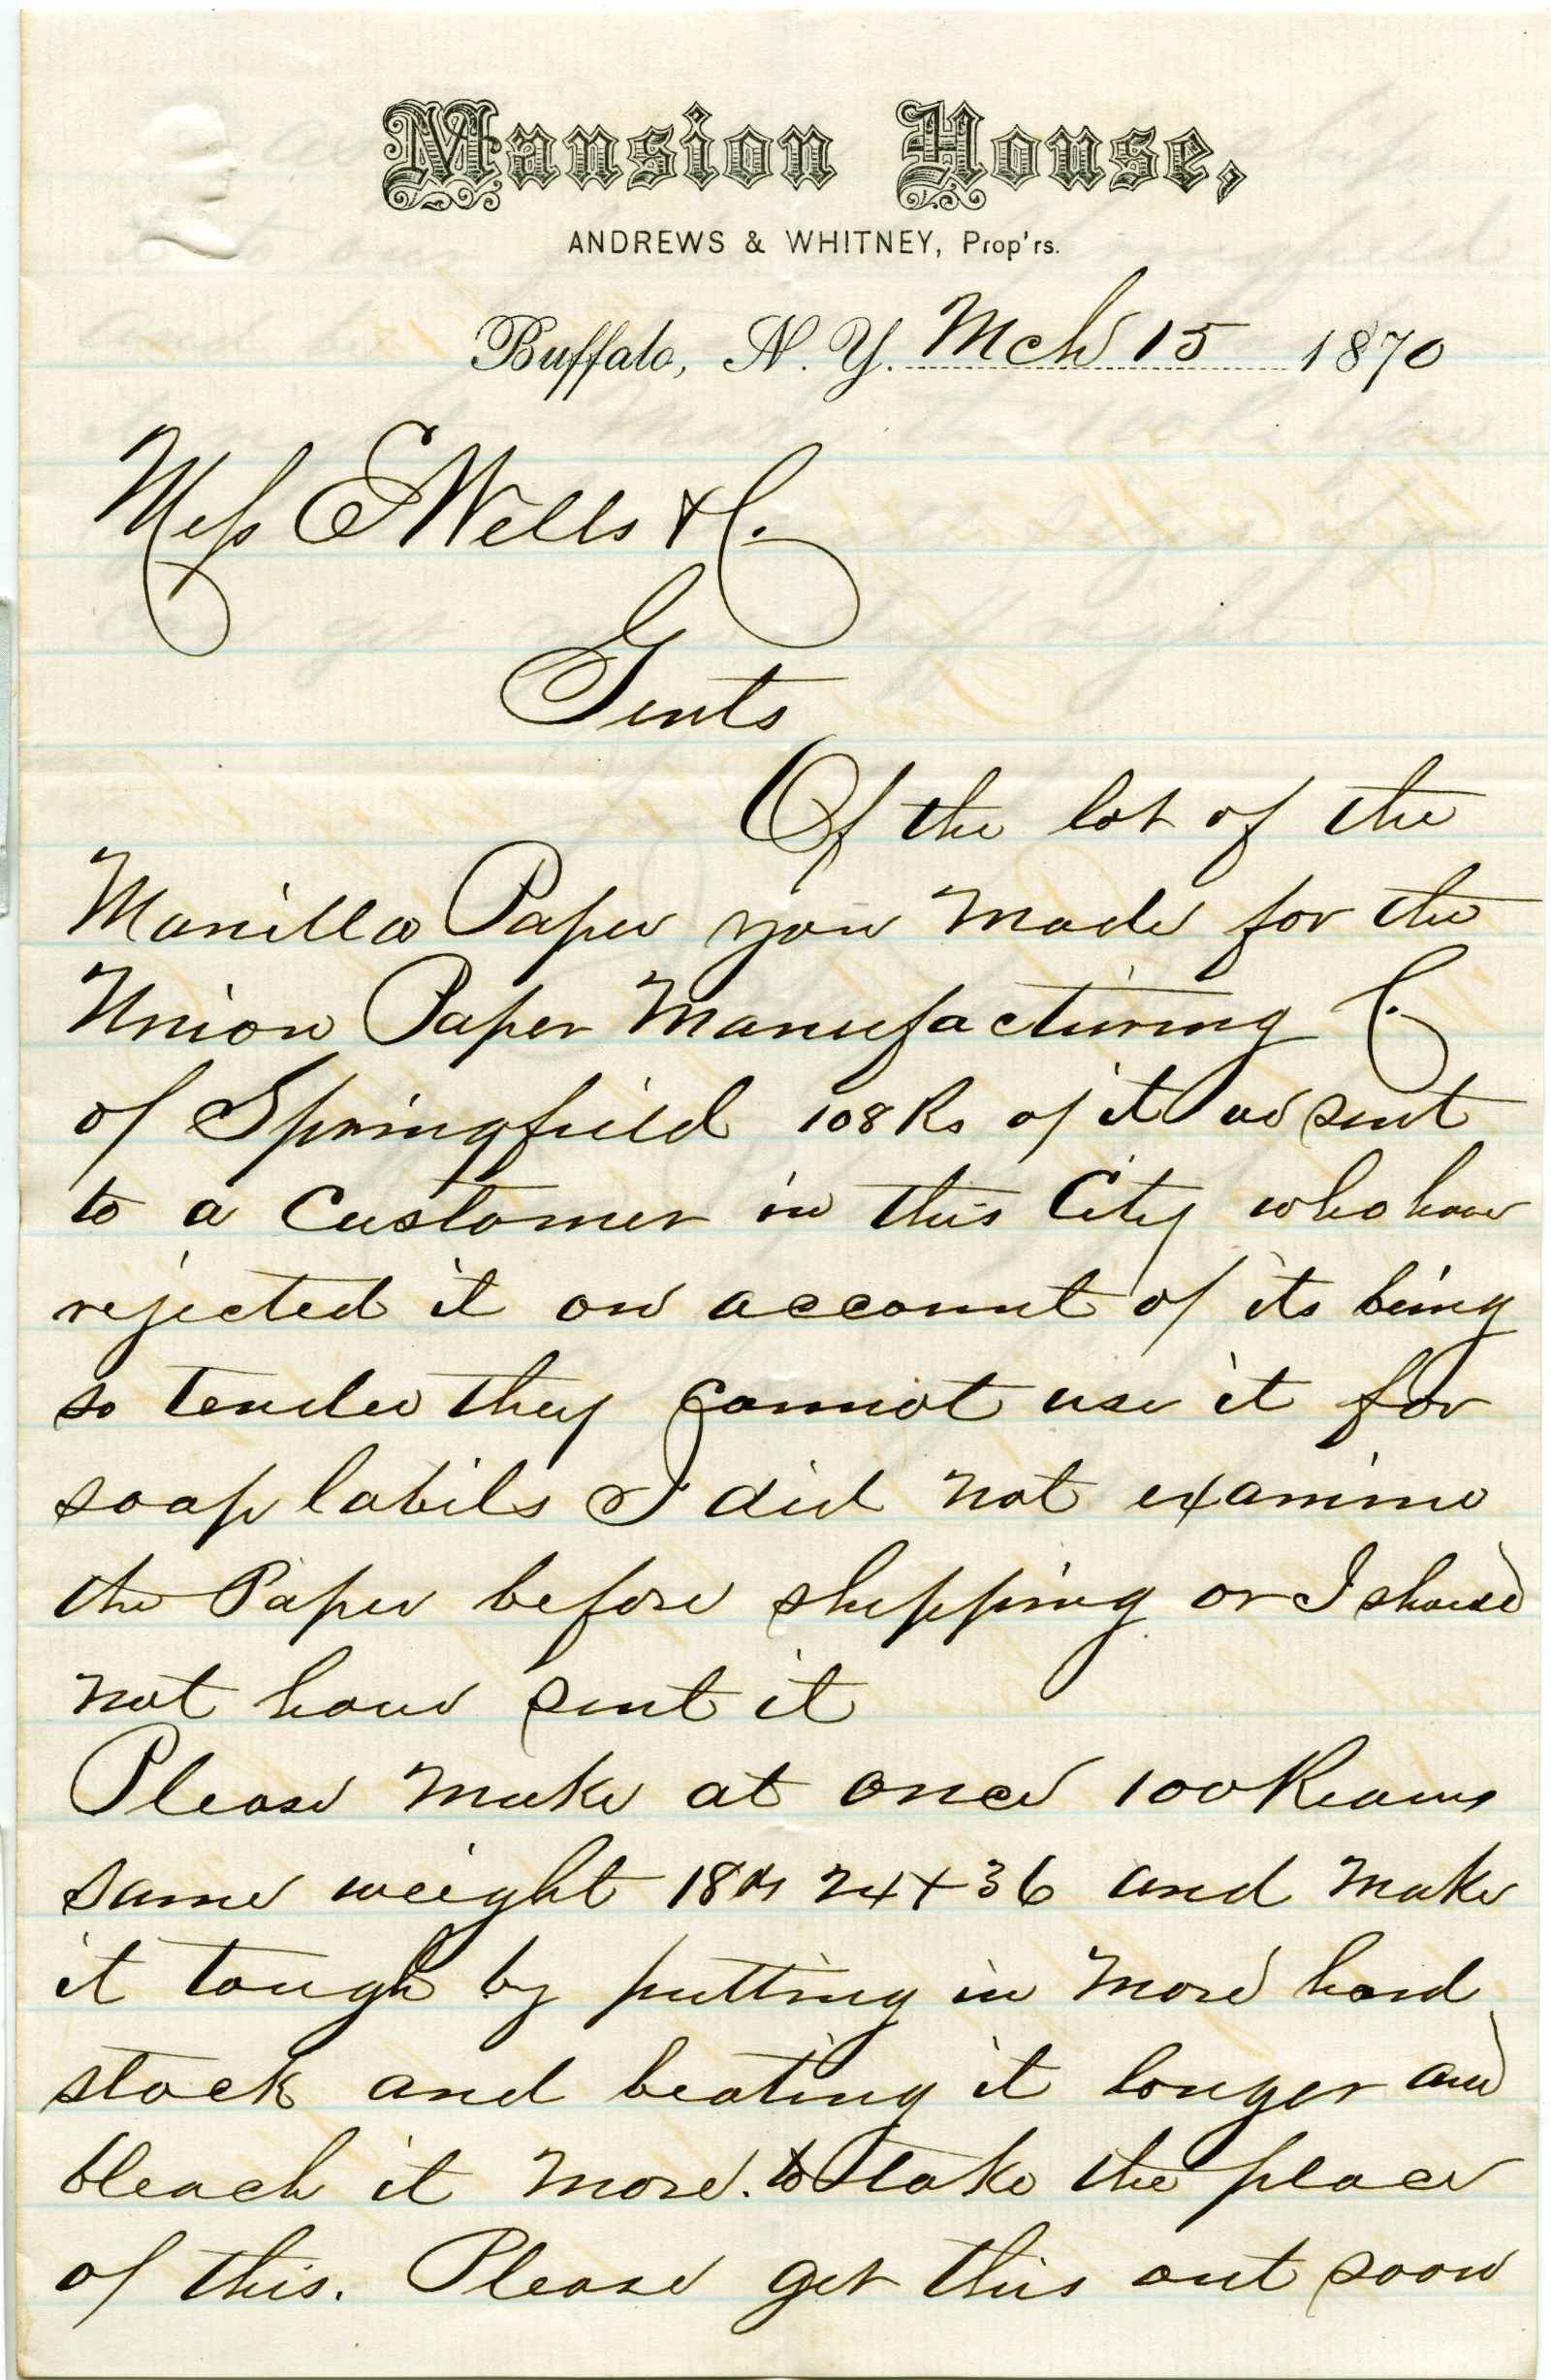 Mansion House,
ANDREWS & WHITNEY, Prop'rs.
Buffalo, N. Y. Mch 15 1870
Mess E Wells & C.
Gents
Of the lot of the
Manilla Paper you made for the
Union Paper Manufacturing C.
of Springfield 108 Rs of it we sent
to a Customer in this City who have
rejected it on account of its being
so tender they cannot use it for
soap labels I did not examine
the Paper before shipping or I should
not have sent it
Please make at once 100 Reams
same weight 18 24+36 and make
it tough by putting in more hard
stock and beating it longer and
bleach it more. to take the place
of this. Please get this out soon